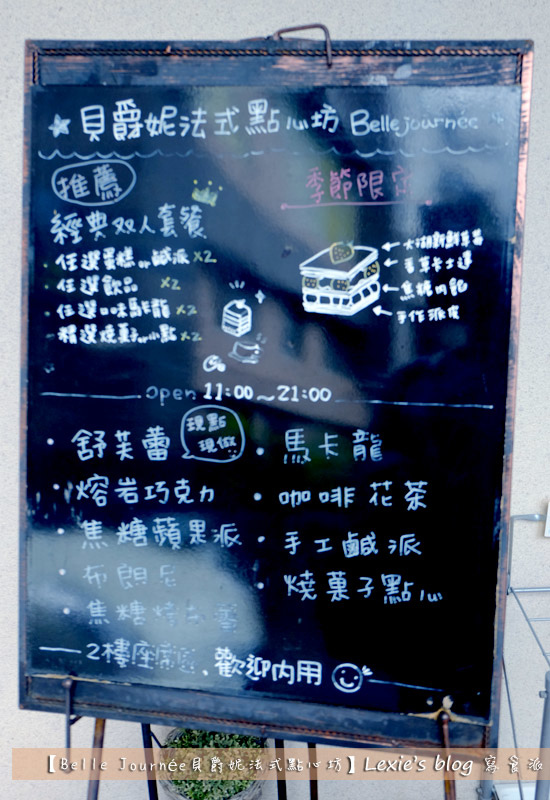 ★貝爵妮法式點心坊 Belle journée
推薦
季節限定
經典双人套餐
・任選蛋糕or鹹派 x2
・任選飲品 x2
・任選口味馬卡龍 x2
・精選燒菓子or小點 x2
大湖新鮮草莓
香草卡士達
焦糖肉餡
手作派皮
open 11:00～21:00
・舒芙蕾
現點現做
・熔岩巧克力
・焦糖蘋果派
・布朗尼
・馬卡龍
・咖啡花茶
・手工鹹派
・燒菓子點心
2樓座
歡迎內用
【Belle Journée貝爵妮法式點心坊】Lexie's blog 寫食派